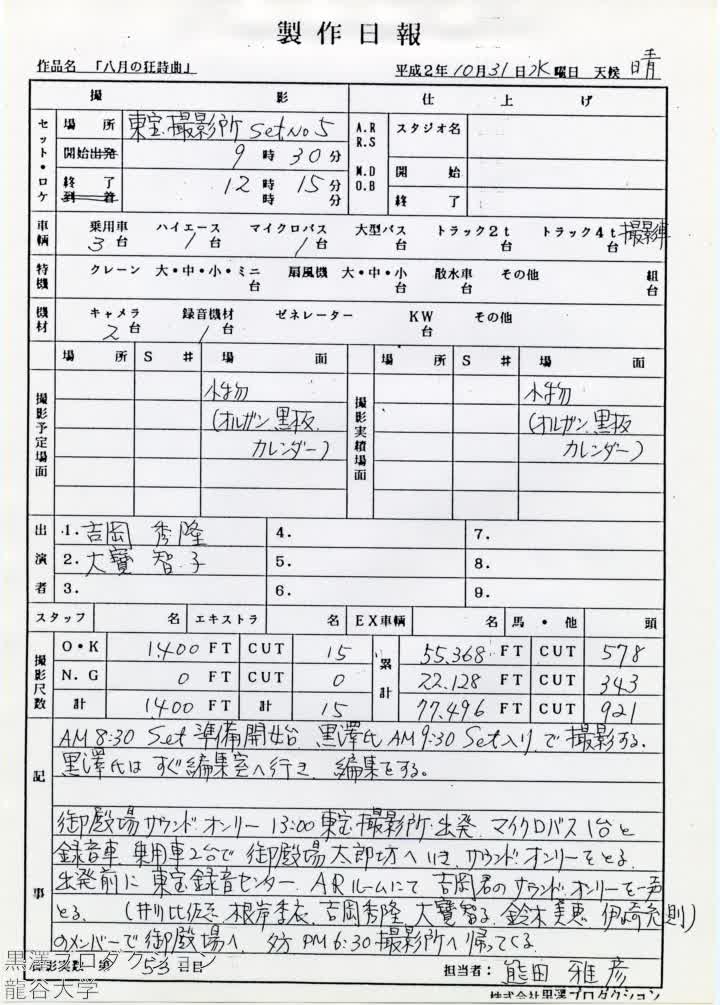 製作日報
作品名 「八月の狂詩曲」 平成2年10月31日水曜日 天候 晴
撮影 仕上げ
セット・ロケ 場所 東宝撮影所 Set No 5 A.R R.S スタジオ名
開始出発 9時30分 M.D O.B 開始
終了到着 12時15分 時 分 終了
車輌 乗用車 3台 ハイエース 1台 マイクロバス 1台 大型バス 台 トラック2t 台 トラック4t 台 撮影車
特機 クレーン 大・中・小・ミニ 台 扇風機 大・中・小 台 散水車 台 その他 組 台
機材 キャメラ 2台 録音機材 1台 ゼネレーター KW 台 その他
場所 S# 場面 場所 S# 場面
撮影予定場面 小物 撮影実績場面 小物
(オルガン、黒板、 (オルガン、黒板
カレンダー) カレンダー)
出演者 1. 吉岡 秀隆 4. 7.
2. 大寶 智子 5. 8.
3. 6. 9.
スタッフ 名 エキストラ 名 EX車輌 名 馬・他 頭
撮影尺数 O・K 1400 FT CUT 15 累計 55.368 FT CUT 578
N.G 0 FT CUT 0 22.128 FT CUT 343
計 1400 FT 計 15 77.496 FT CUT 921
記事
AM 8:30 Set 準備開始 黒澤氏 AM 9:30 Set入り、で撮影する。
黒澤氏はすぐ編集室へ行き、編集をする。
御殿場サウンドオンリー 13:00 東宝撮影所出発、マイクロバス1台と
録音車、乗用車2台で御殿場太郎坊へいき、サウンドオンリーをとる。
出発前に東宝録音センター、ARルームにて吉岡君のサウンドオンリーを一声
とる。 (井川比佐志、根岸季衣、吉岡秀隆、大寶智子、鈴木美恵、伊崎充則)
のメンバーで御殿場へ、夕方 PM 6:30 撮影所へ帰ってくる。
撮影実数 第 53 日目 担当者: 熊田 雅彦
株式会社黒澤プロダクション
黒澤プロダクション
龍谷大学